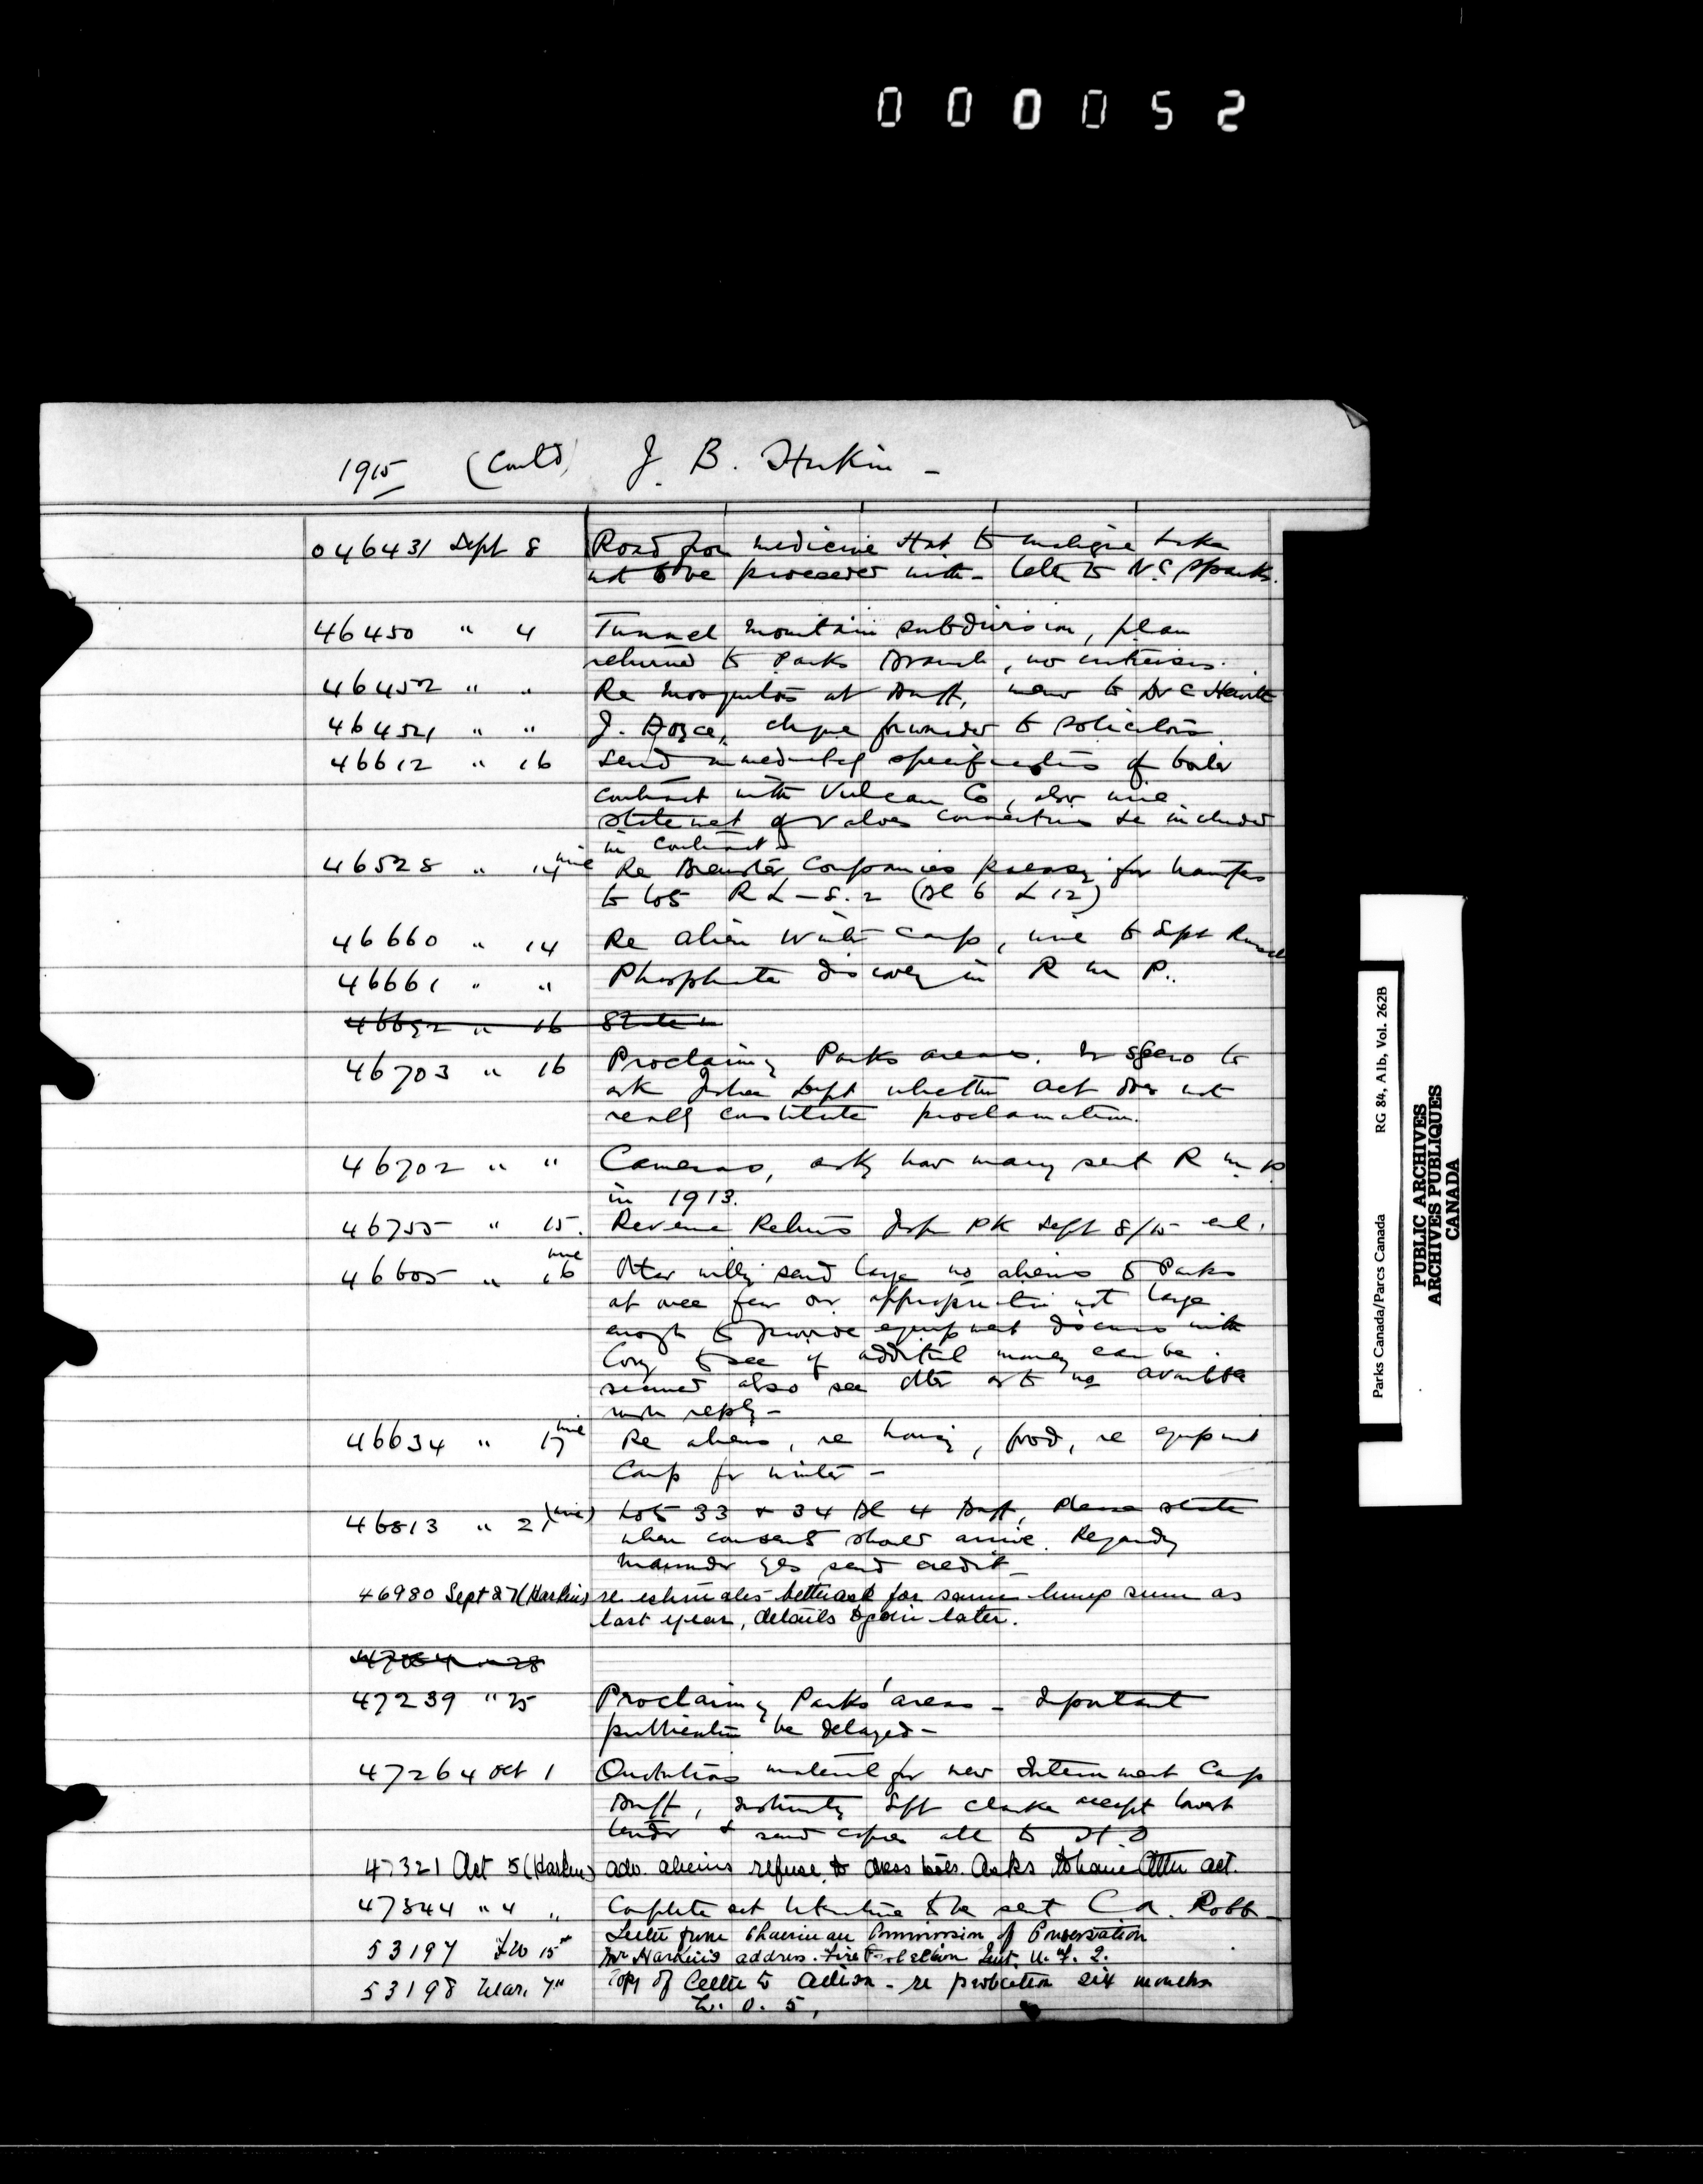 0 0 0 0 5 2
1915 (Contd) J. B. Harkin -
046431 Sept 8 Road from Medicine Hat to Maligne Lake
not to be proceeded with - letter to N.C. Sparks.
46450 " 4 Tunnel Mountain subdivision, plan
returned to Parks Branch, no criticisms.
46452 " " Re Mosquitos at Banff, memo to Dr C Hewitt
46451 " " J. Boyce, cheque forwarded to Solicitors
46612 " 16 Send immediately specifications of boiler
contract with Vulcan Co, also wire
statement of values connections to be included
in contract
46528 " 14 wire Re Brewster Companies for transfer
to lots (Bl 6 & 12)
46660 " 14 Re alien winter camp, wire to Supt
46661 " " Phosphate discovery in R M P.
46692 " 16 State
46703 " 16 Proclaiming Parks areas. to
ask Justice Dept whether Act does not
really constitute proclamation.
46702 " " Cameras, asks how many sent R M P
in 1913.
46755 " 15. Revenue Returns PK Sept 8/15 encl.
46605 " 16 wire Otter willing send large no aliens to Parks
at once fear our appropriation not large
enough to provide equipment discuss with
Cory to see if additional money can be
secured also see Otter as to no available
wire reply -
46634 " 17 wire Re aliens, re housing, food, re equipment
Camp for winter -
46813 " 21 (wire) Lots 33 & 34 Bl 4 Banff, Please state
when consent should arrive. Regarding
yes send credit -
46980 Sept 27 (Harkin) re estimates - better ask for same lump sum as
last year, details again later.
47064 " 28
47239 " 25 Proclaiming Parks' areas - Important
publication be delayed -
47264 Oct 1 Quotations material for new Internment Camp
Banff, Supt Clarke accept lowest
tender & send copies all to H.O
47321 Oct 5 (Harkin) adv. aliens refuse to Asks to have Otter act.
47344 " 4 " Complete set literature to be sent Robb -
53197 15" Letter from Chairman Commission of Conservation
Mr Harkin's address. Fire Protection
53198 Mar. 7" Copy of letter to - re probation six months
Parks Canada/Parcs Canada RG 84, Alb, Vol. 262B
PUBLIC ARCHIVES
ARCHIVES PUBLIQUES
CANADA